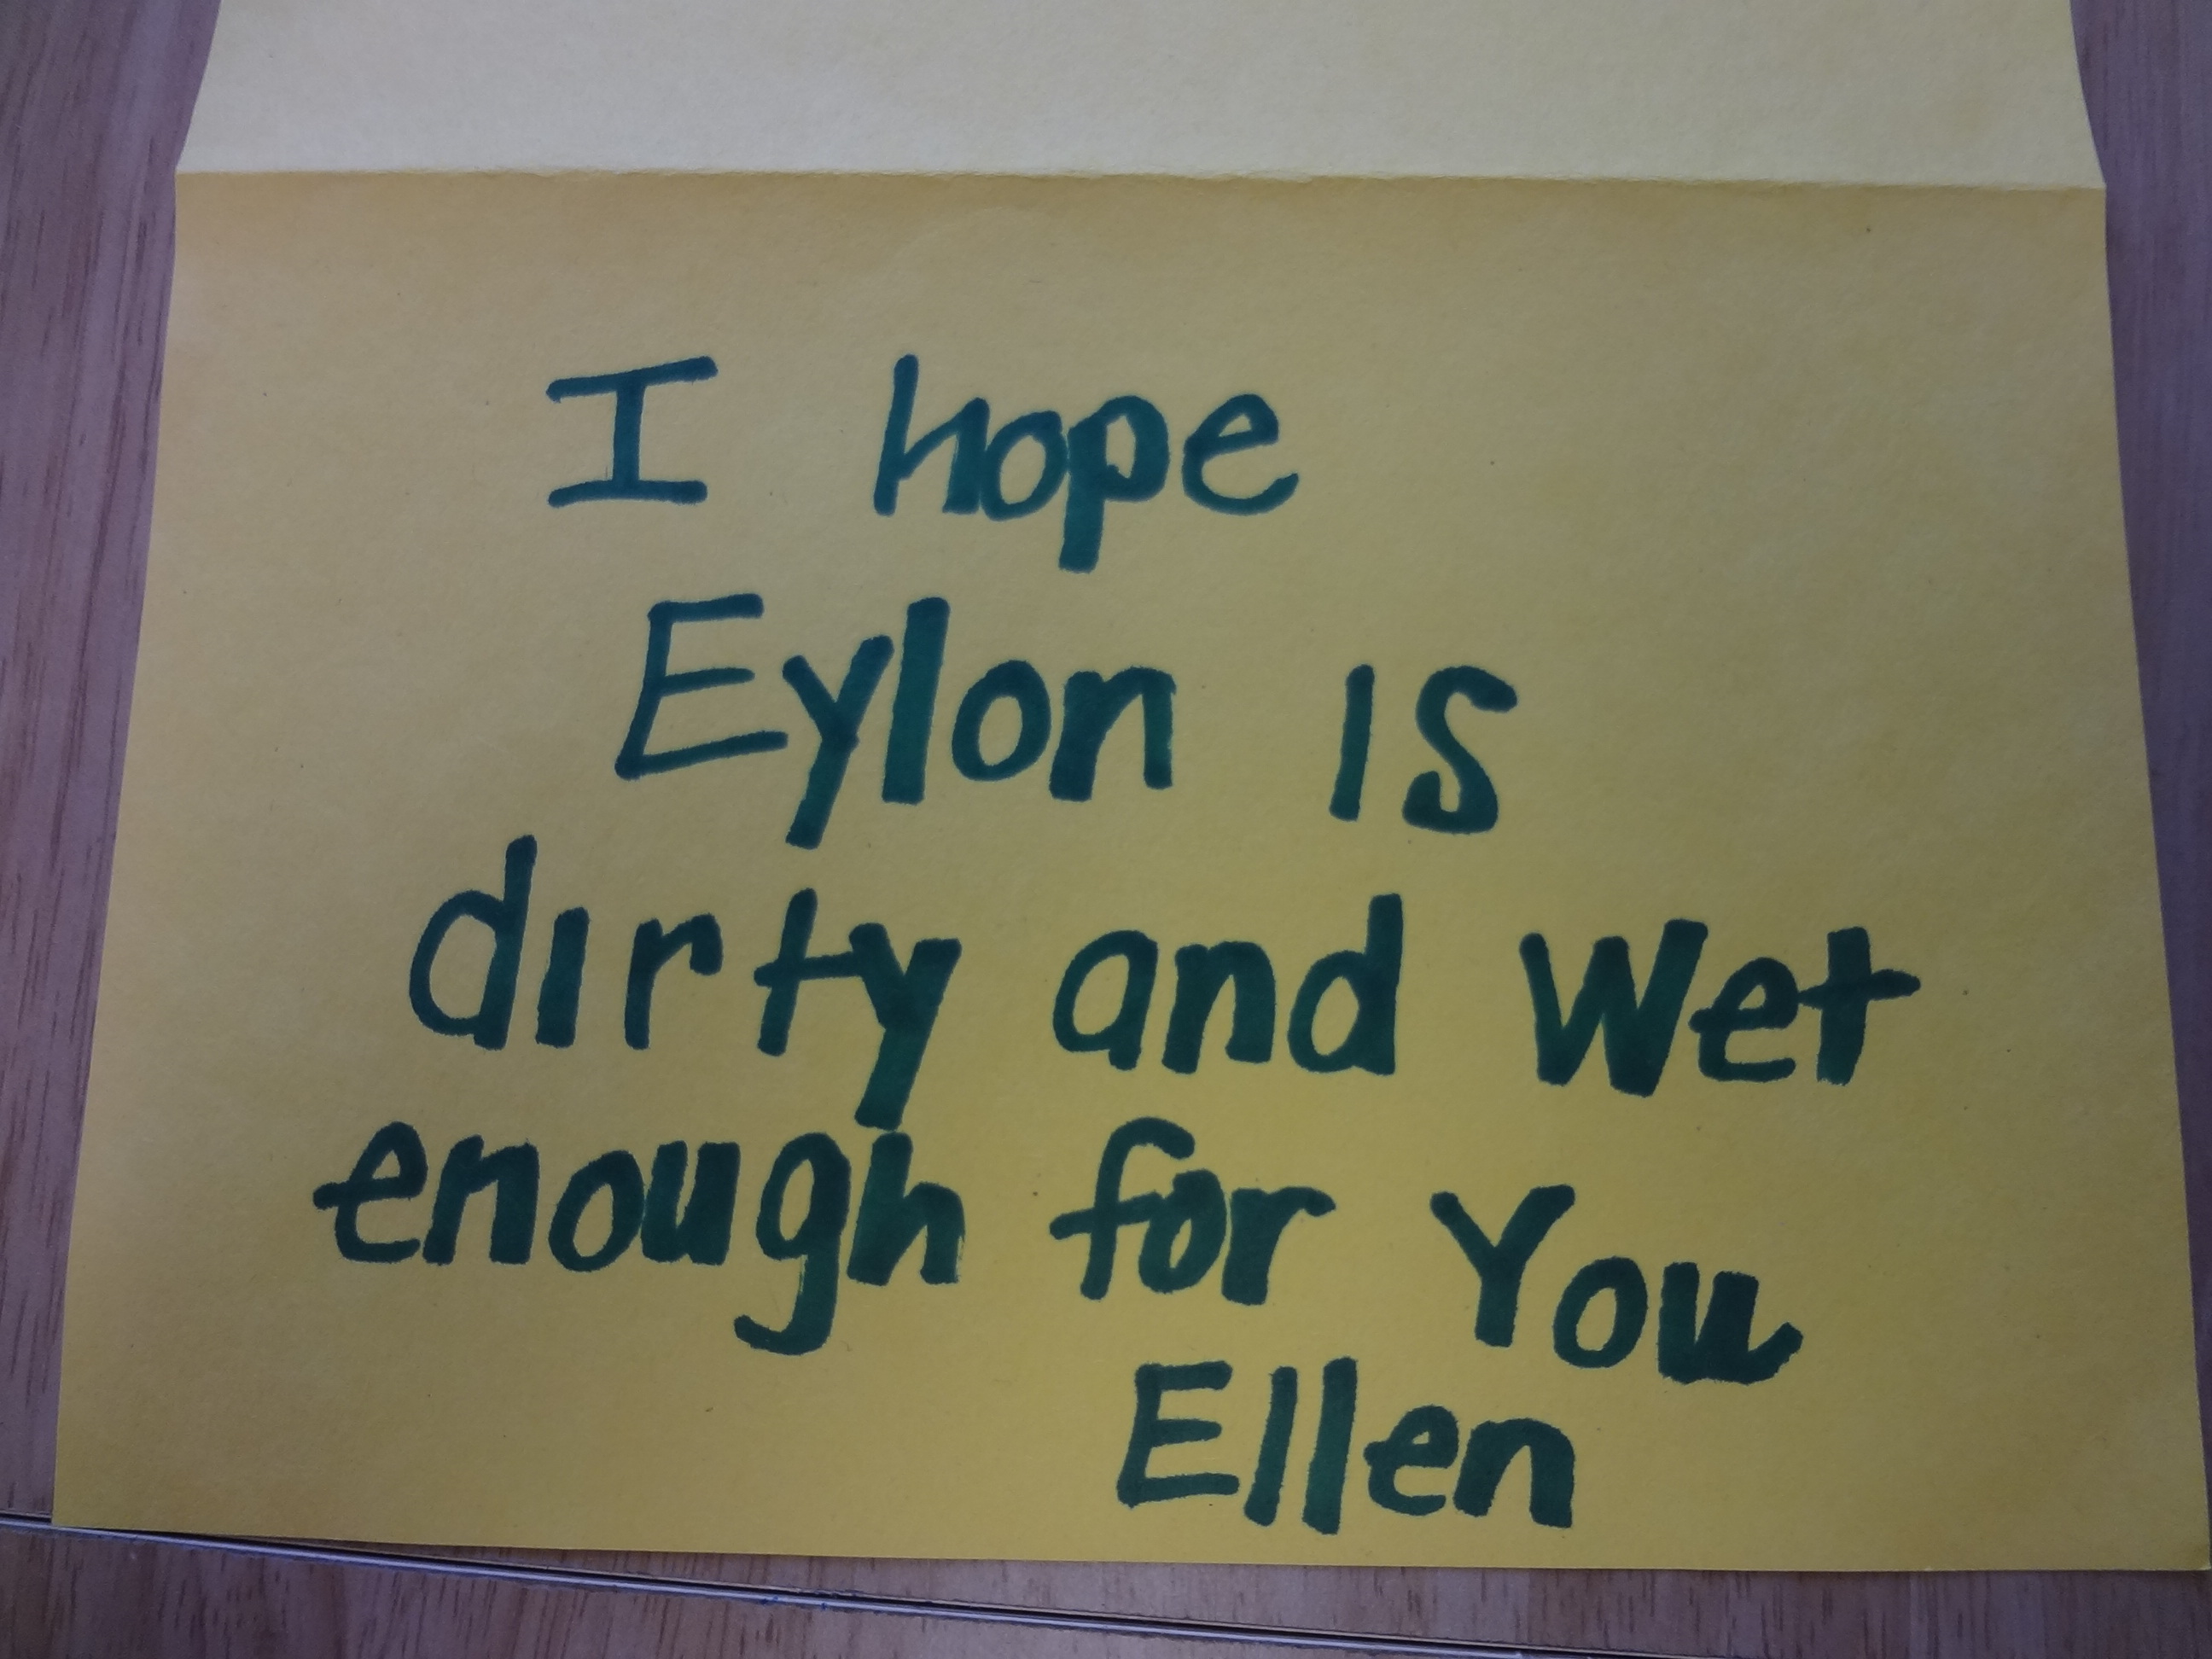 I hope
Eylon is
dirty and Wet
enough for You
Ellen